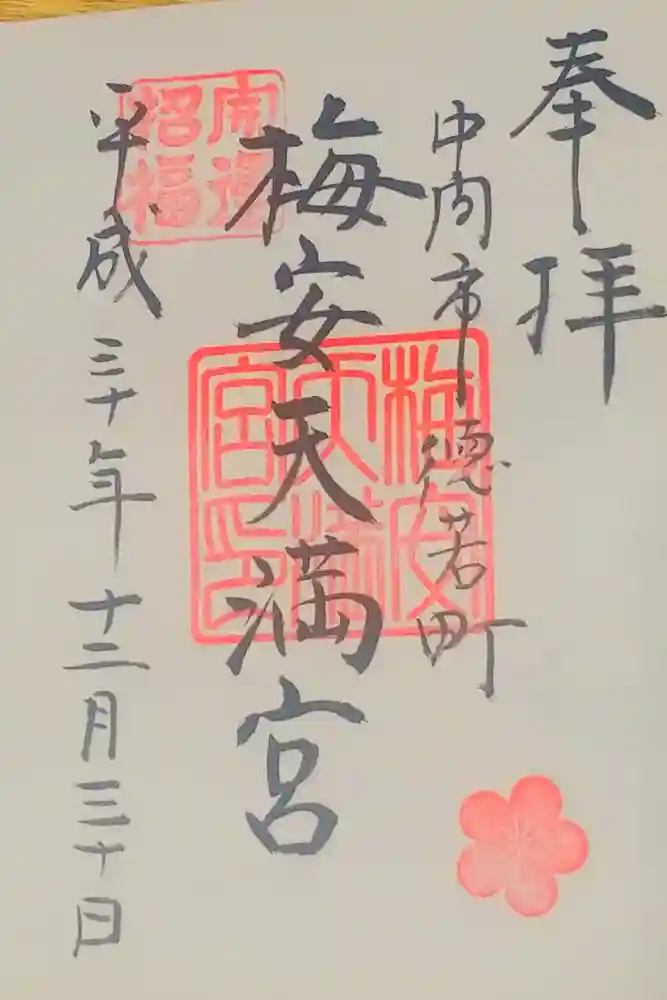 奉拝
中間市徳若町
梅安天満宮
平成三十年十二月三十日
開運招福
梅安天満宮印